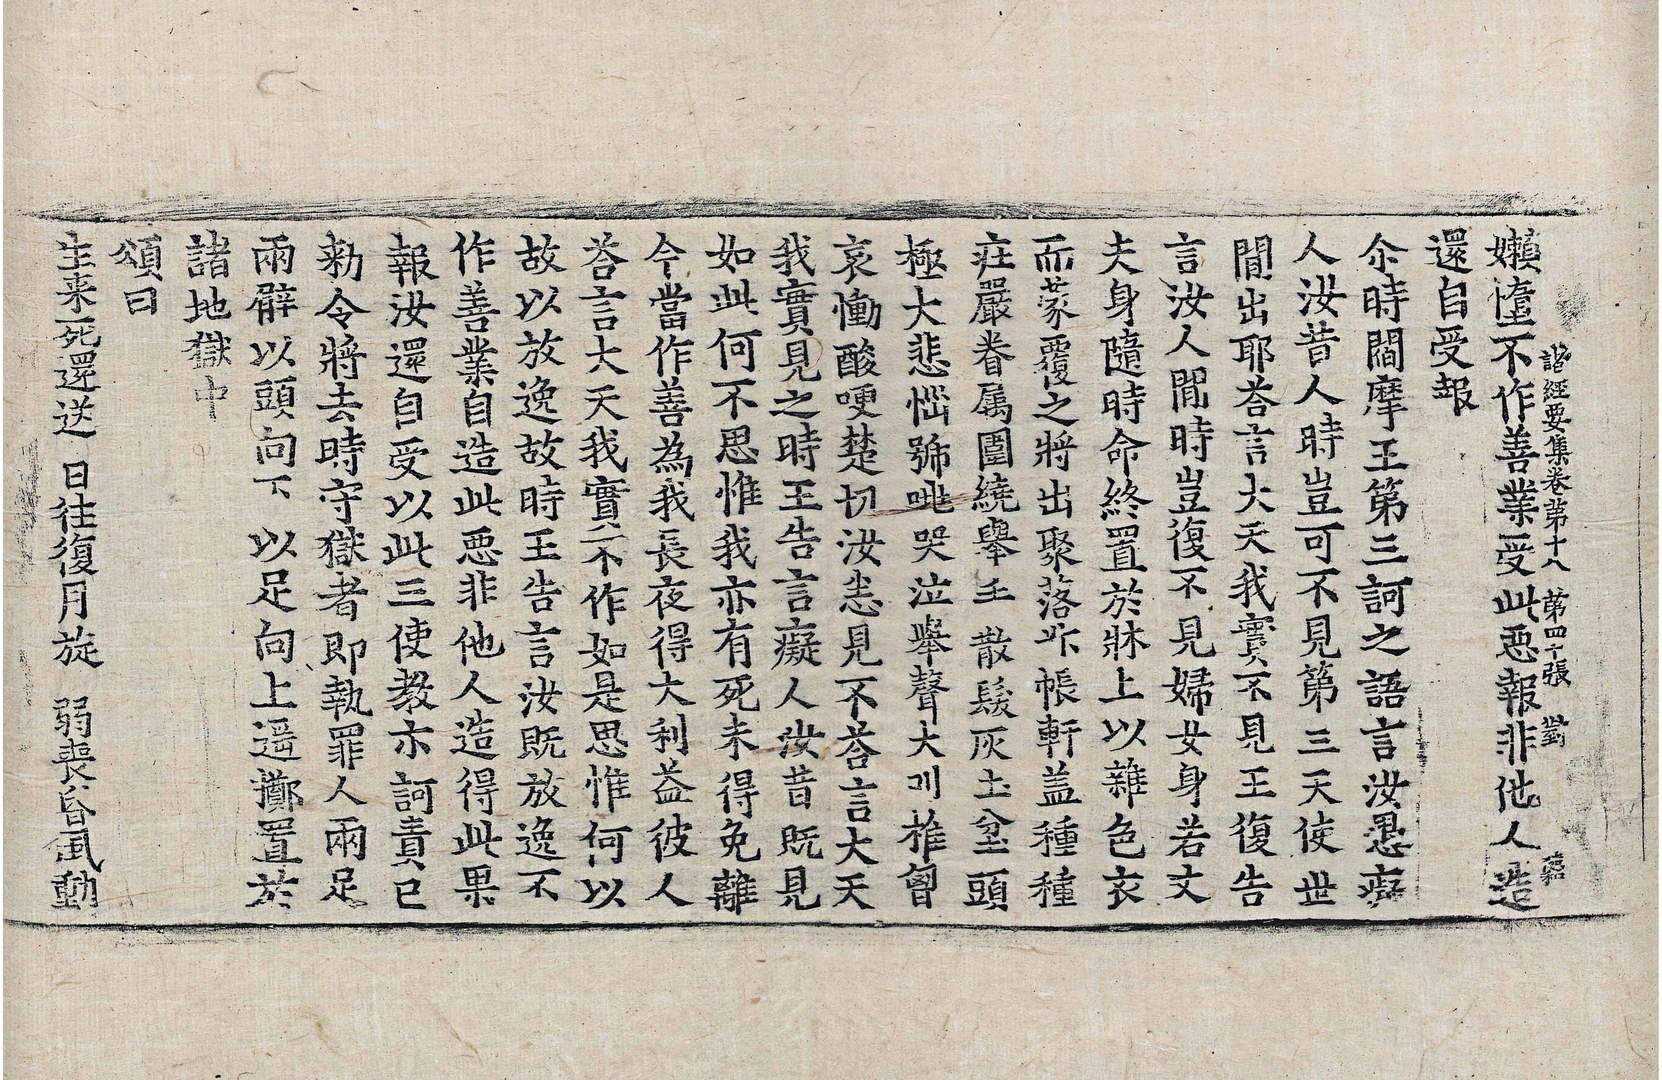 嬾憧不作善業受此惡報非他人造
諸經要集卷第十八 第四十張 對
還自受報
尒時閻摩王第三訶之語言汝愚癡
人汝昔人時豈可不見第三天使世
間出耶荅言大天我實不見王復告
言汝人間時豈復不見婦女身若丈
夫身隨時命終置於牀上以雜色衣
而蒙覆之將出聚落㸃帳軒盖種種
莊嚴眷属圍繞舉王散髮灰土坌頭
極大悲惱號咷哭泣舉聲大叫椎𮌎
哀慟酸哽楚切汝悉見不荅言大天
我實見之時王告言癡人汝昔既見
如此何不思惟我亦有死未得免離
今當作善為我長夜得大利益彼人
荅言大天我實不作如是思惟何以
故以放逸故時王告言汝既放逸不
作善業自造此惡非他人造得此果
報汝還自受以此三使教示訶責已
勑令將去時守獄者即執罪人兩足
兩臂以頭向下以足向上遥擲置於
諸地獄中
頌曰
生来死還送 日往復月旋 弱喪昏風動